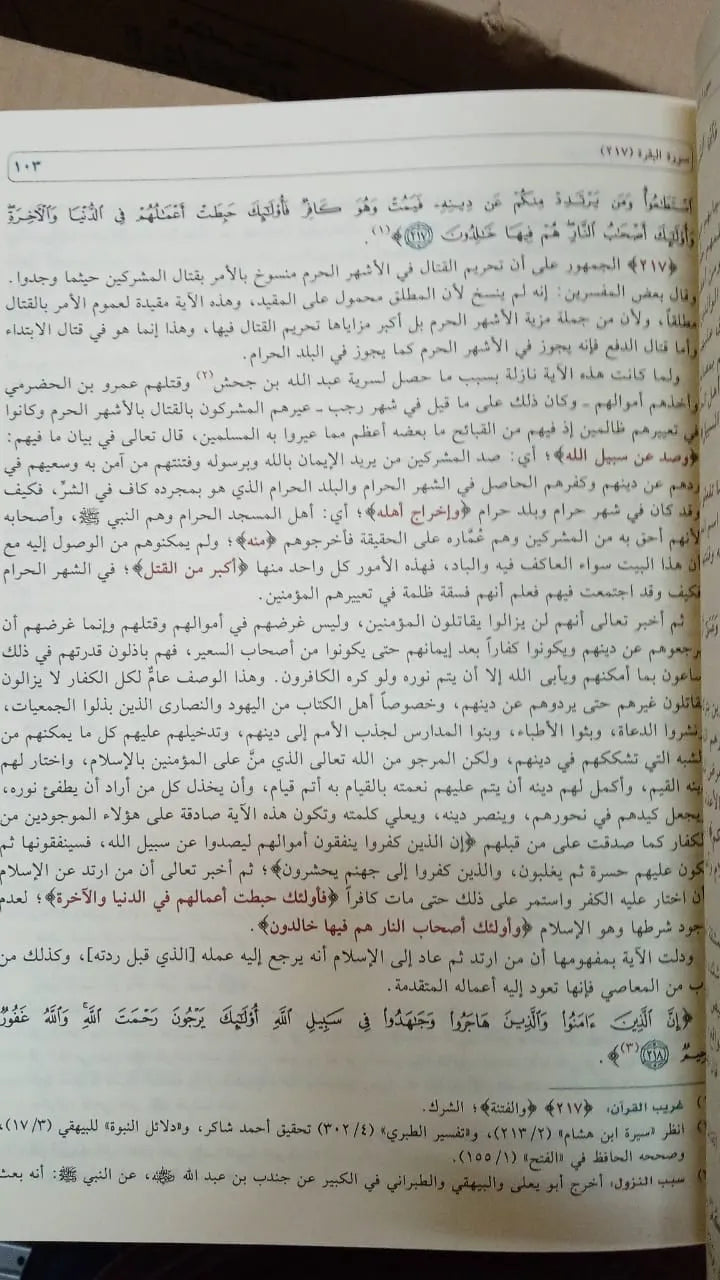 سورة البقرة (٢١٧) ١٠٣
اسْتَطَاعُوا وَمَن يَرْتَدِدْ مِنكُمْ عَن دِينِهِ فَيَمُتْ وَهُوَ كَافِرٌ فَأُولَٰئِكَ حَبِطَتْ أَعْمَالُهُمْ فِي الدُّنْيَا وَالْآخِرَةِ
وَأُولَٰئِكَ أَصْحَابُ النَّارِ هُمْ فِيهَا خَالِدُونَ (٢١٧)﴾(١).
﴿٢١٧﴾ الجمهور على أن تحريم القتال في الأشهر الحرم منسوخ بالأمر بقتال المشركين حيثما وجدوا.
وقال بعض المفسرين: إنه لم ينسخ لأن المطلق محمول على المقيد، وهذه الآية مقيدة لعموم الأمر بالقتال
مطلقاً، ولأن من جملة مزية الأشهر الحرم بل أكبر مزاياها تحريم القتال فيها، وهذا إنما هو في قتال الابتداء
وأما قتال الدفع فإنه يجوز في الأشهر الحرم كما يجوز في البلد الحرام.
ولما كانت هذه الآية نازلة بسبب ما حصل لسرية عبد الله بن جحش(٢) وقتلهم عمرو بن الحضرمي
وأخذهم أموالهم ـ وكان ذلك على ما قيل في شهر رجب ـ عيرهم المشركون بالقتال بالأشهر الحرم وكانوا
في تعييرهم ظالمين إذ فيهم من القبائح ما بعضه أعظم مما عيروا به المسلمين، قال تعالى في بيان ما فيهم:
﴿وصد عن سبيل الله﴾؛ أي: صد المشركين من يريد الإيمان بالله وبرسوله وفتنتهم من آمن به وسعيهم في
ردهم عن دينهم وكفرهم الحاصل في الشهر الحرام والبلد الحرام الذي هو بمجرده كاف في الشرّ، فكيف
وقد كان في شهر حرام وبلد حرام ﴿وإخراج أهله﴾؛ أي: أهل المسجد الحرام وهم النبي ﷺ، وأصحابه
لأنهم أحق به من المشركين وهم عُمَّاره على الحقيقة فأخرجوهم ﴿منه﴾؛ ولم يمكنوهم من الوصول إليه مع
أن هذا البيت سواء العاكف فيه والباد، فهذه الأمور كل واحد منها ﴿أكبر من القتل﴾؛ في الشهر الحرام
فكيف وقد اجتمعت فيهم فعلم أنهم فسقة ظلمة في تعييرهم المؤمنين.
ثم أخبر تعالى أنهم لن يزالوا يقاتلون المؤمنين، وليس غرضهم في أموالهم وقتلهم وإنما غرضهم أن
يرجعوهم عن دينهم ويكونوا كفاراً بعد إيمانهم حتى يكونوا من أصحاب السعير، فهم باذلون قدرتهم في ذلك
ساعون بما أمكنهم ويأبى الله إلا أن يتم نوره ولو كره الكافرون. وهذا الوصف عامٌّ لكل الكفار لا يزالون
يقاتلون غيرهم حتى يردوهم عن دينهم، وخصوصاً أهل الكتاب من اليهود والنصارى الذين بذلوا الجمعيات،
ونشروا الدعاة، وبثوا الأطباء، وبنوا المدارس لجذب الأمم إلى دينهم، وتدخيلهم عليهم كل ما يمكنهم من
لشبه التي تشككهم في دينهم، ولكن المرجو من الله تعالى الذي منَّ على المؤمنين بالإسلام، واختار لهم
ينه القيم، وأكمل لهم دينه أن يتم عليهم نعمته بالقيام به أتم قيام، وأن يخذل كل من أراد أن يطفئ نوره،
يجعل كيدهم في نحورهم، وينصر دينه، ويعلي كلمته وتكون هذه الآية صادقة على هؤلاء الموجودين من
لكفار كما صدقت على من قبلهم ﴿إن الذين كفروا ينفقون أموالهم ليصدوا عن سبيل الله، فسينفقونها ثم
كون عليهم حسرة ثم يغلبون، والذين كفروا إلى جهنم يحشرون﴾؛ ثم أخبر تعالى أن من ارتد عن الإسلام
أن اختار عليه الكفر واستمر على ذلك حتى مات كافراً ﴿فأولئك حبطت أعمالهم في الدنيا والآخرة﴾؛ لعدم
جود شرطها وهو الإسلام ﴿وأولئك أصحاب النار هم فيها خالدون﴾.
ودلت الآية بمفهومها أن من ارتد ثم عاد إلى الإسلام أنه يرجع إليه عمله [الذي قبل ردته]، وكذلك من
ب من المعاصي فإنها تعود إليه أعماله المتقدمة.
﴿إِنَّ الَّذِينَ ءَامَنُوا وَالَّذِينَ هَاجَرُوا وَجَاهَدُوا فِي سَبِيلِ اللَّهِ أُولَٰئِكَ يَرْجُونَ رَحْمَتَ اللَّهِ وَاللَّهُ غَفُورٌ
رَّحِيمٌ (٢١٨)(٣)﴾.
غريب القرآن: ﴿٢١٧﴾ ﴿والفتنة﴾؛ الشرك.
انظر «سيرة ابن هشام» (٢/٢١٣)، و«تفسير الطبري» (٤/٣٠٢) تحقيق أحمد شاكر، و«دلائل النبوة» للبيهقي (٣/١٧)،
وصححه الحافظ في «الفتح» (١/١٥٥).
سبب النزول: أخرج أبو يعلى والبيهقي والطبراني في الكبير عن جندب بن عبد الله رضي الله عنه، عن النبي ﷺ: أنه بعث